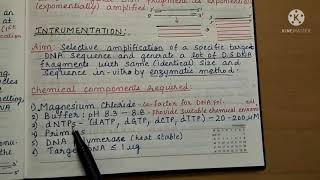 exponentially amplified)
INTRUMENTATION:
Aim: Selective amplification of a specific target
DNA sequence and generate a lot of D.S.DNA
fragments with same (identical) size and
sequence in-vitro by enzymatic method.
Chemical components required:
1) Magnesium Chloride - Co-factor for DNA Pol.
2) Buffer: pH 8.3 - 8.8 - Provide suitable chemical environ
3) dNTPs - (dATP, dGTP, dCTP, dTTP) - 20-200μM
4) Primers
5) DNA Polymerase (heat stable)
6) Target DNA ≤ 1 μg
KINEMASTER